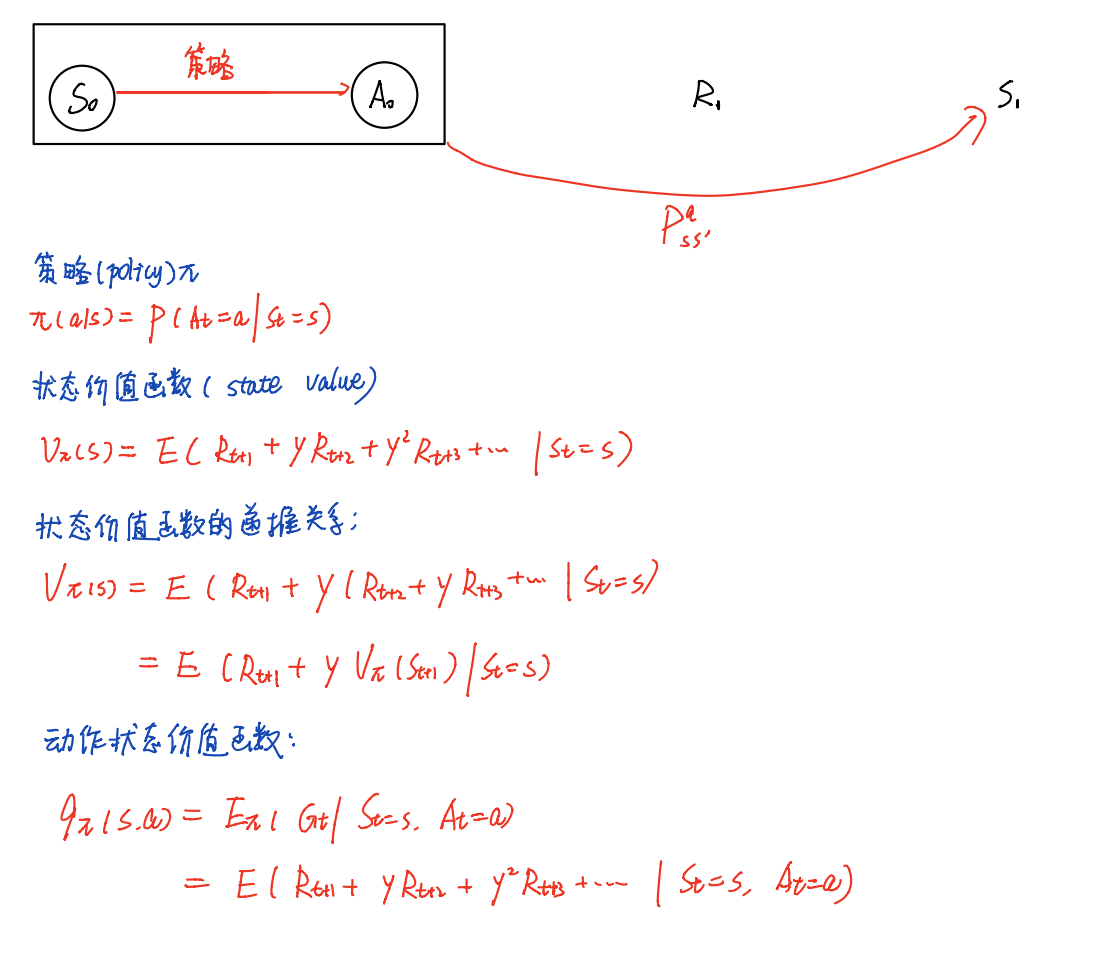 策略
S₀ A₀ R₁ S₁
P^a_ss'
策略(policy)π
π(a|s) = P(At=a|St=s)
状态价值函数(state value)
Vπ(s) = E(Rt+1 + γRt+2 + γ²Rt+3 + ... |St=s)
状态价值函数的递推关系:
Vπ(s) = E(Rt+1 + γ(Rt+2 + γRt+3 + ... |St=s)
= E(Rt+1 + γVπ(St+1)|St=s)
动作状态价值函数:
qπ(s.a) = Eπ(Gt|St=s. At=a)
= E(Rt+1 + γRt+2 + γ²Rt+3 + ... | St=s, At=a)